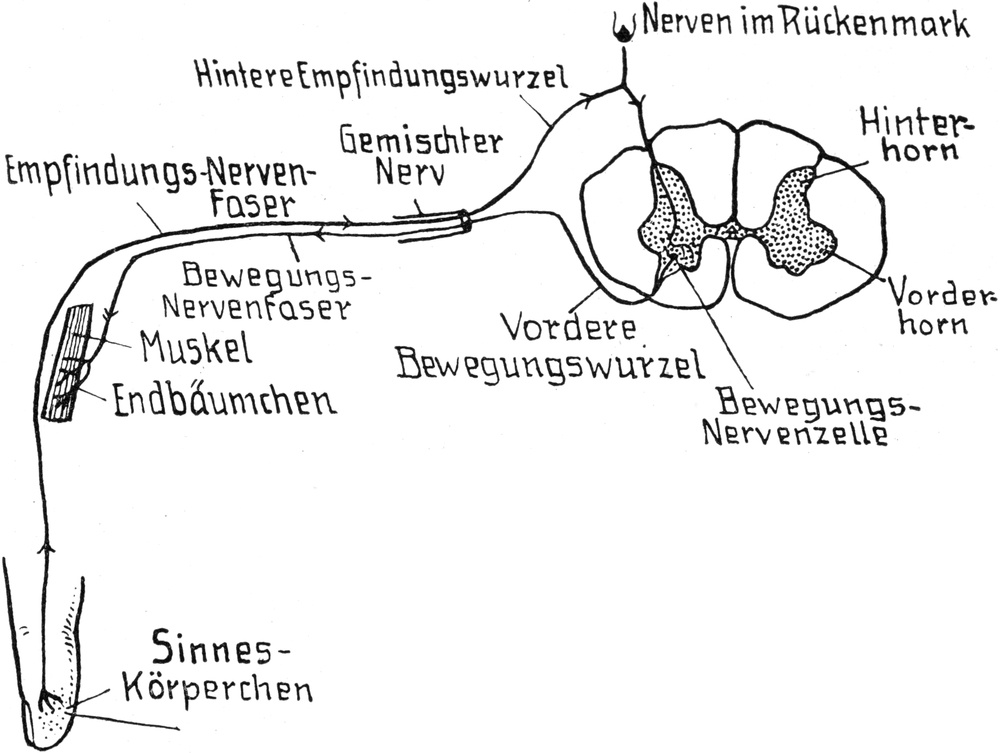 Nerven im Rückenmark
Hintere Empfindungswurzel
Gemischter
Nerv
Hinter-
horn
Empfindungs-Nerven-
Faser
Bewegungs-
Nervenfaser
Vorder-
horn
Vordere
Bewegungswurzel
Muskel
Endbäumchen
Bewegungs-
Nervenzelle
Sinnes-
Körperchen